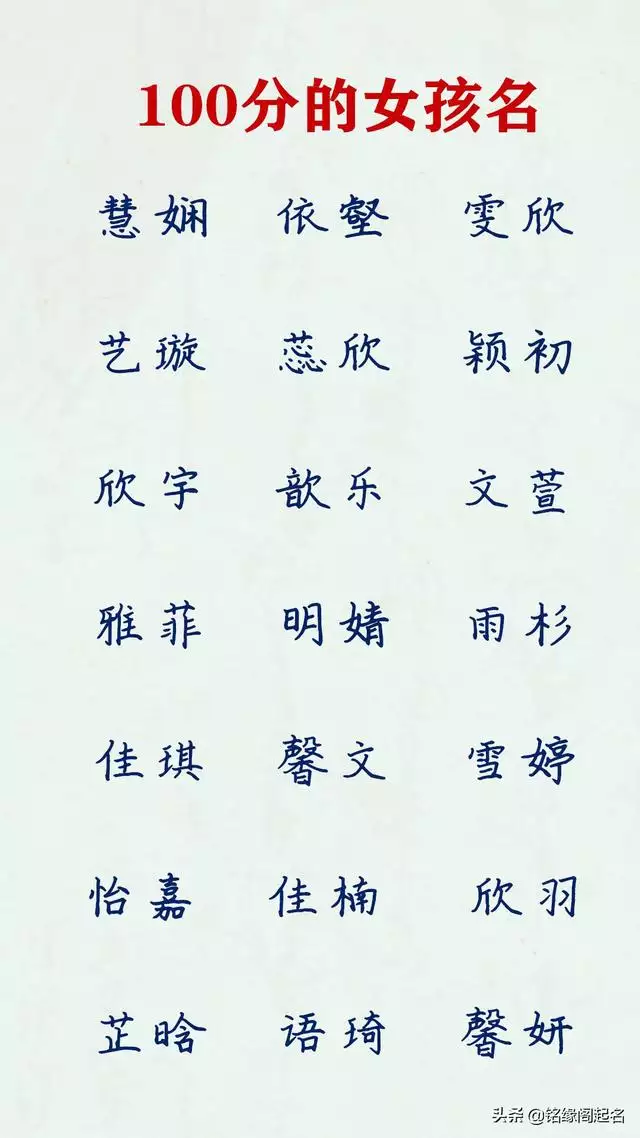 100分的女孩名
慧娴 依壑 雯欣
艺璇 蕊欣 颖初
欣宇 歆乐 文萱
雅菲 明婧 雨杉
佳琪 馨文 雪婷
怡嘉 佳楠 欣羽
芷晗 语琦 馨妍
头条 @铭缘阁起名